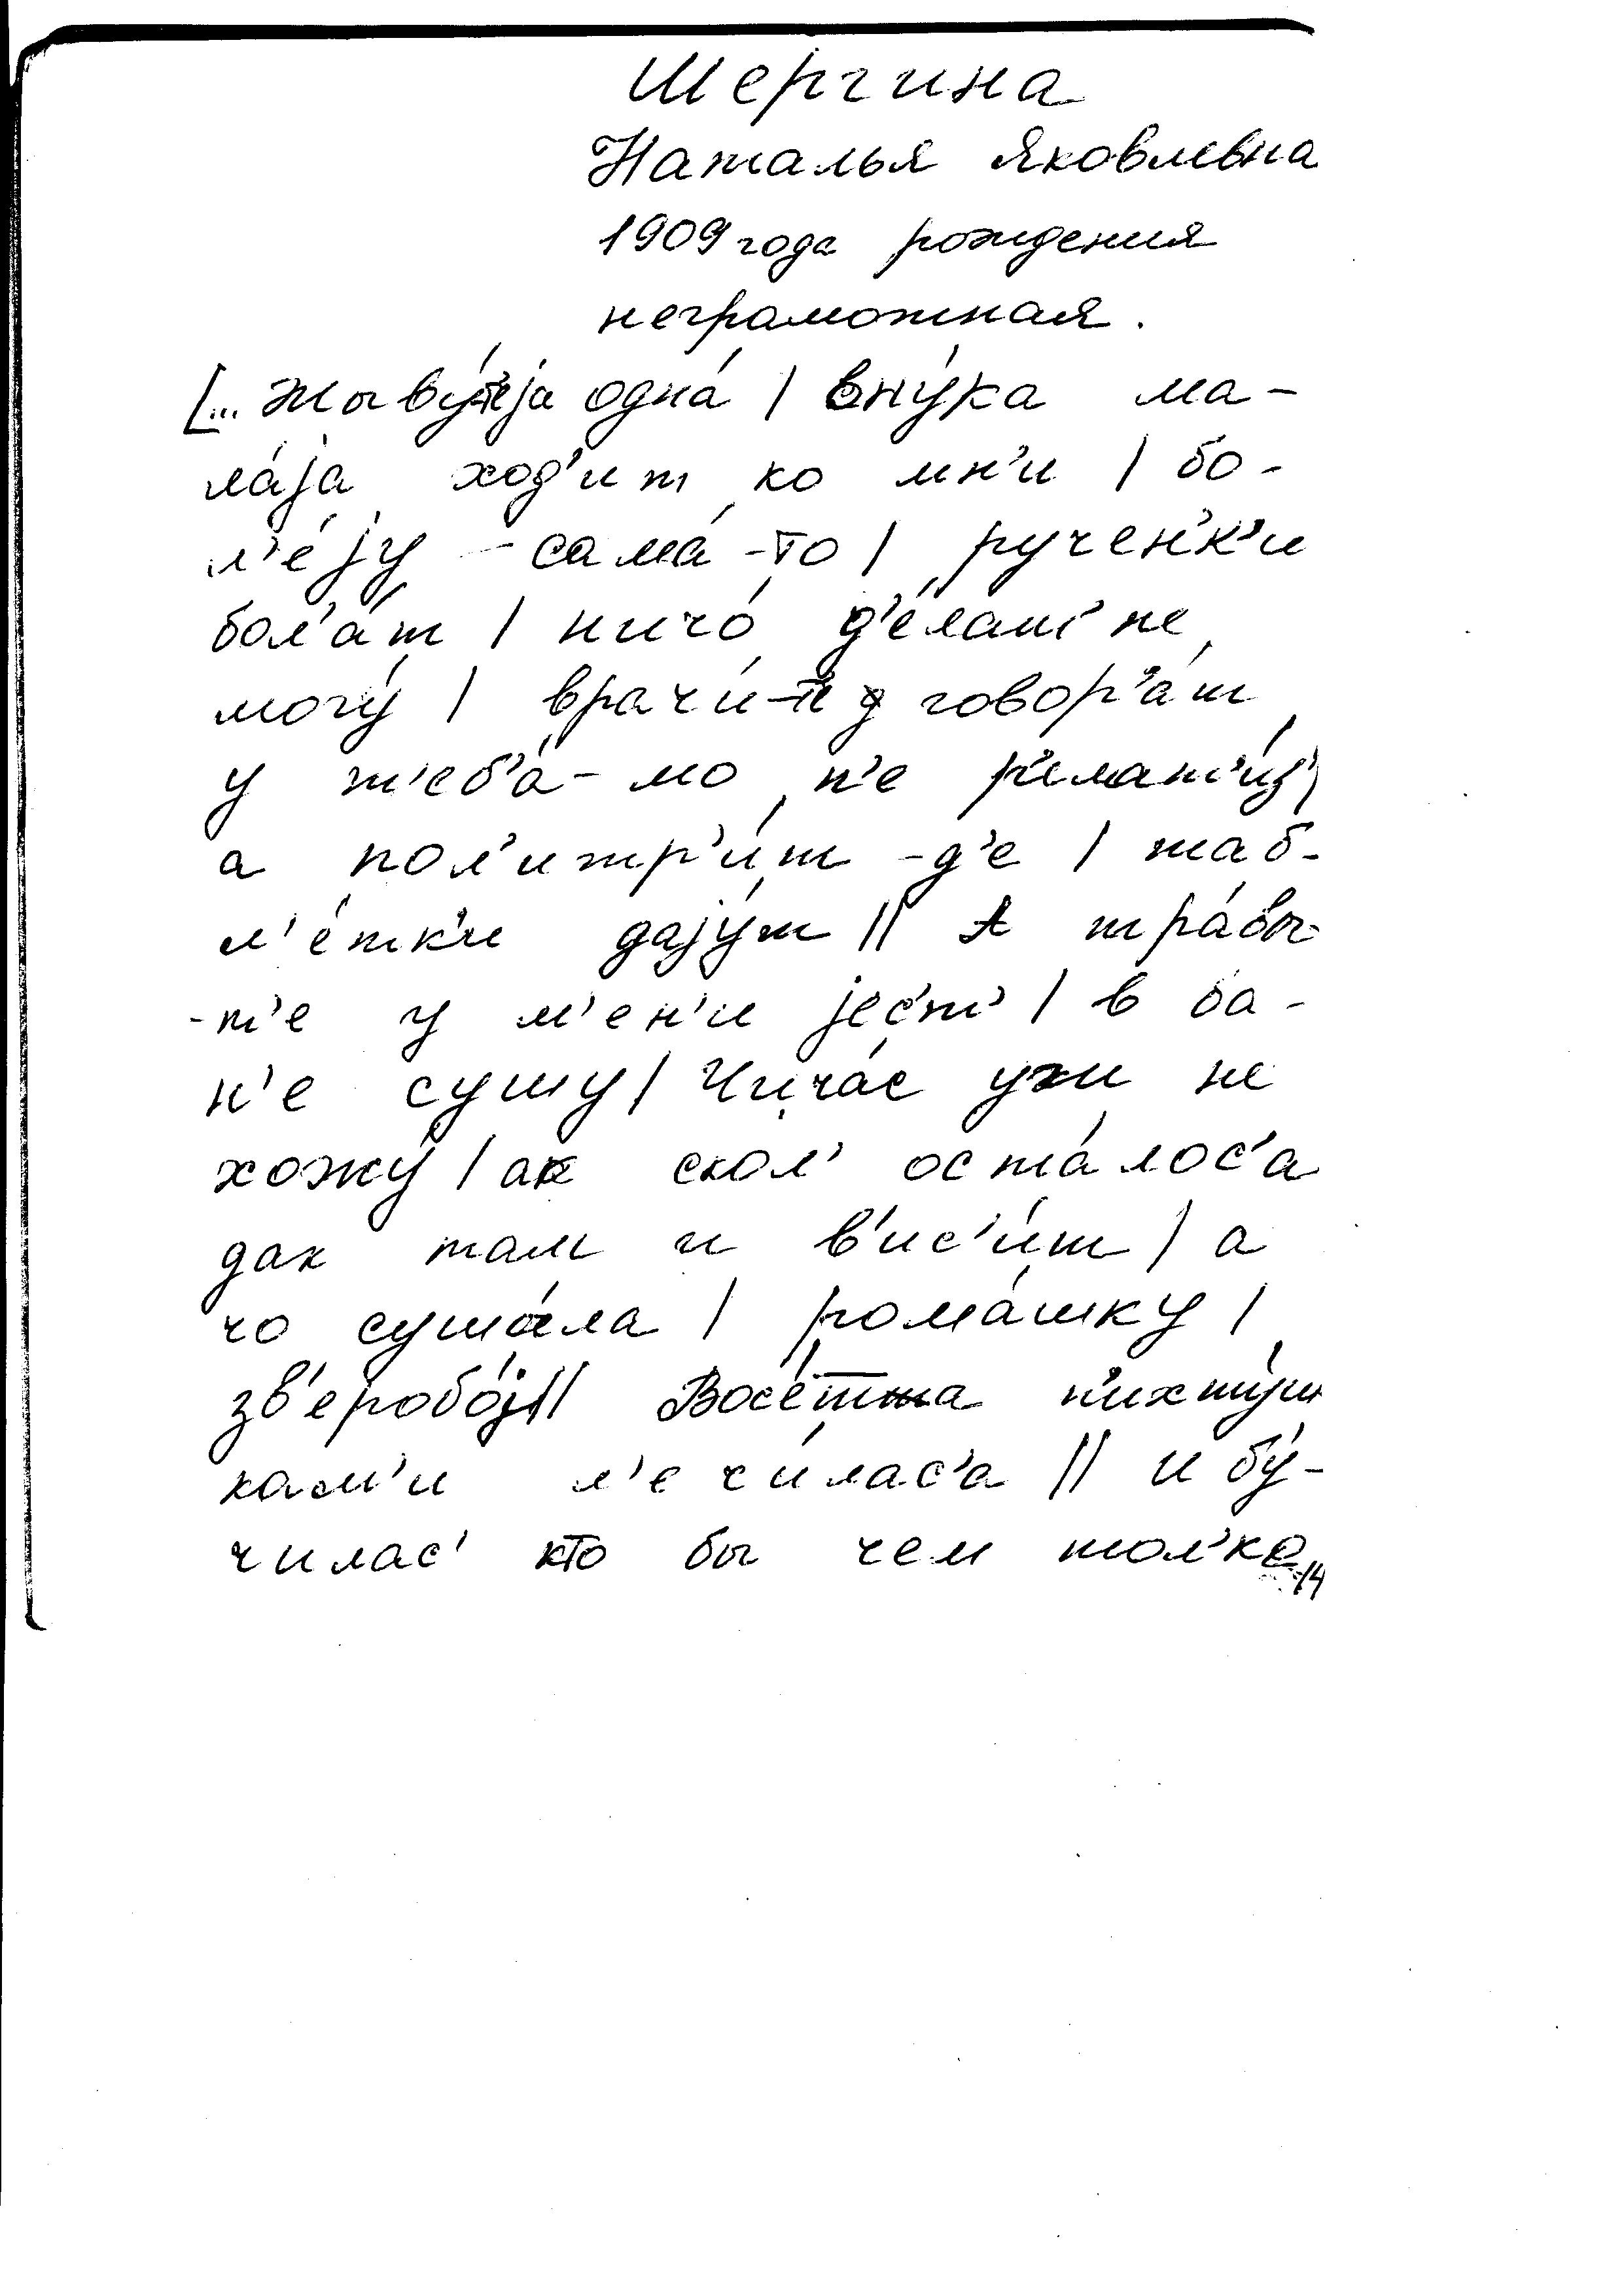 Шергина
Наталья Яковлевна
1909 года рождения
неграмотная.
[... жыву́ jа одна́ | вну́ка ма-
ла́jа ход'ит ко мн'и | бо-
л'е́jу - сама́ -то | ру́чен'к'и
бол'а́т | ничо́ д'е́лат' не
могу́ | врачи́- говор'а́т
у т'еб'а́- мо н'е р'имат'и́з |
а пол'итр'и́т -д'е | таб-
л'е́тк'и даjу́т || А тра́вы-
-т'е у м'ен'и jес'т' | в ба-
н'е сушу | Чича́с ужи не
хожу́ | ак скол' оста́лос'а
дак там и в'ис'и́т | а
чо суши́ла | рома́шку |
зв'еробо́j || п'ихту́ш
кам'и л'ечи́лас'а || и бу́-
чилас' кто бы чем тол'ко
14